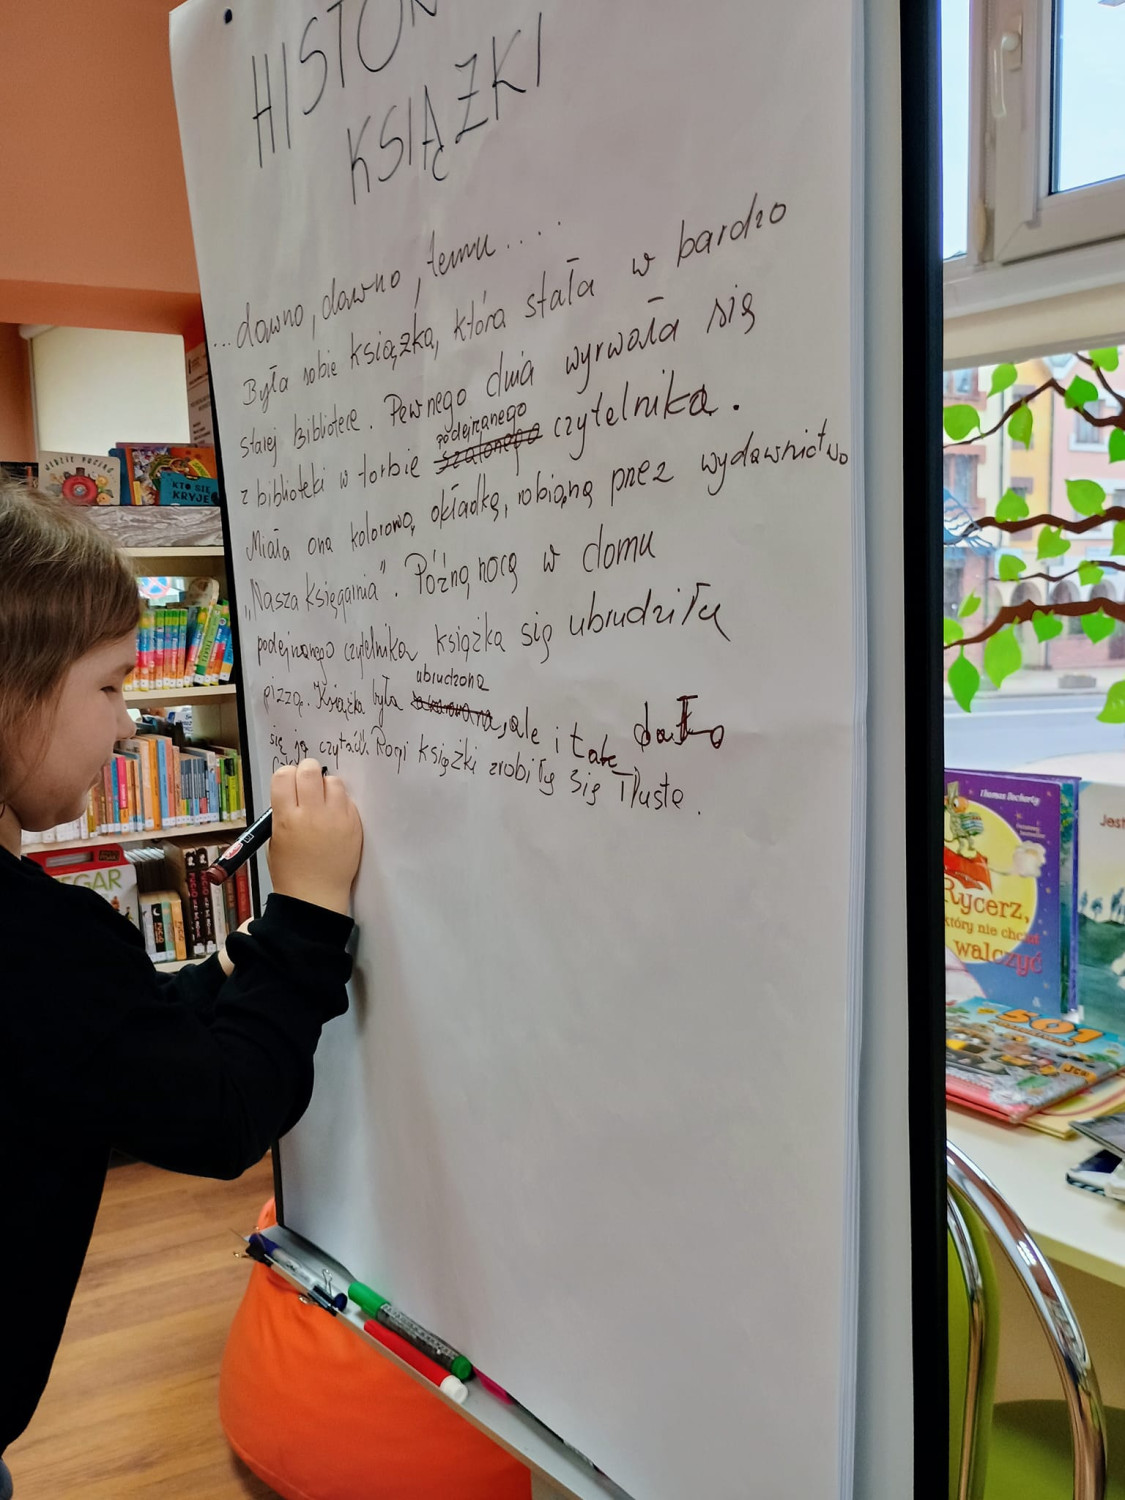 HISTOR
KSIĄŻKI
...dawno, dawno, temu.....
Była sobie książka, która stała w bardzo
starej bibliotece. Pewnego dnia wyrwała się
podejrzanego
z biblioteki w torbie szalonego czytelnika.
Miała ona kolorową okładkę, robioną przez wydawnictwo
„Nasza Księgarnia". Późną nocą w domu
podejrzanego czytelnika książka się ubrudziła
ubrudzona
pizzą. Książka była, ale i tak dało
się ją czytać. Rogi książki zrobiły się Tłuste.
KTO SIĘ
KRYJE
Thomas Docherty
Rycerz,
który nie chciał
walczyć
501
Jest